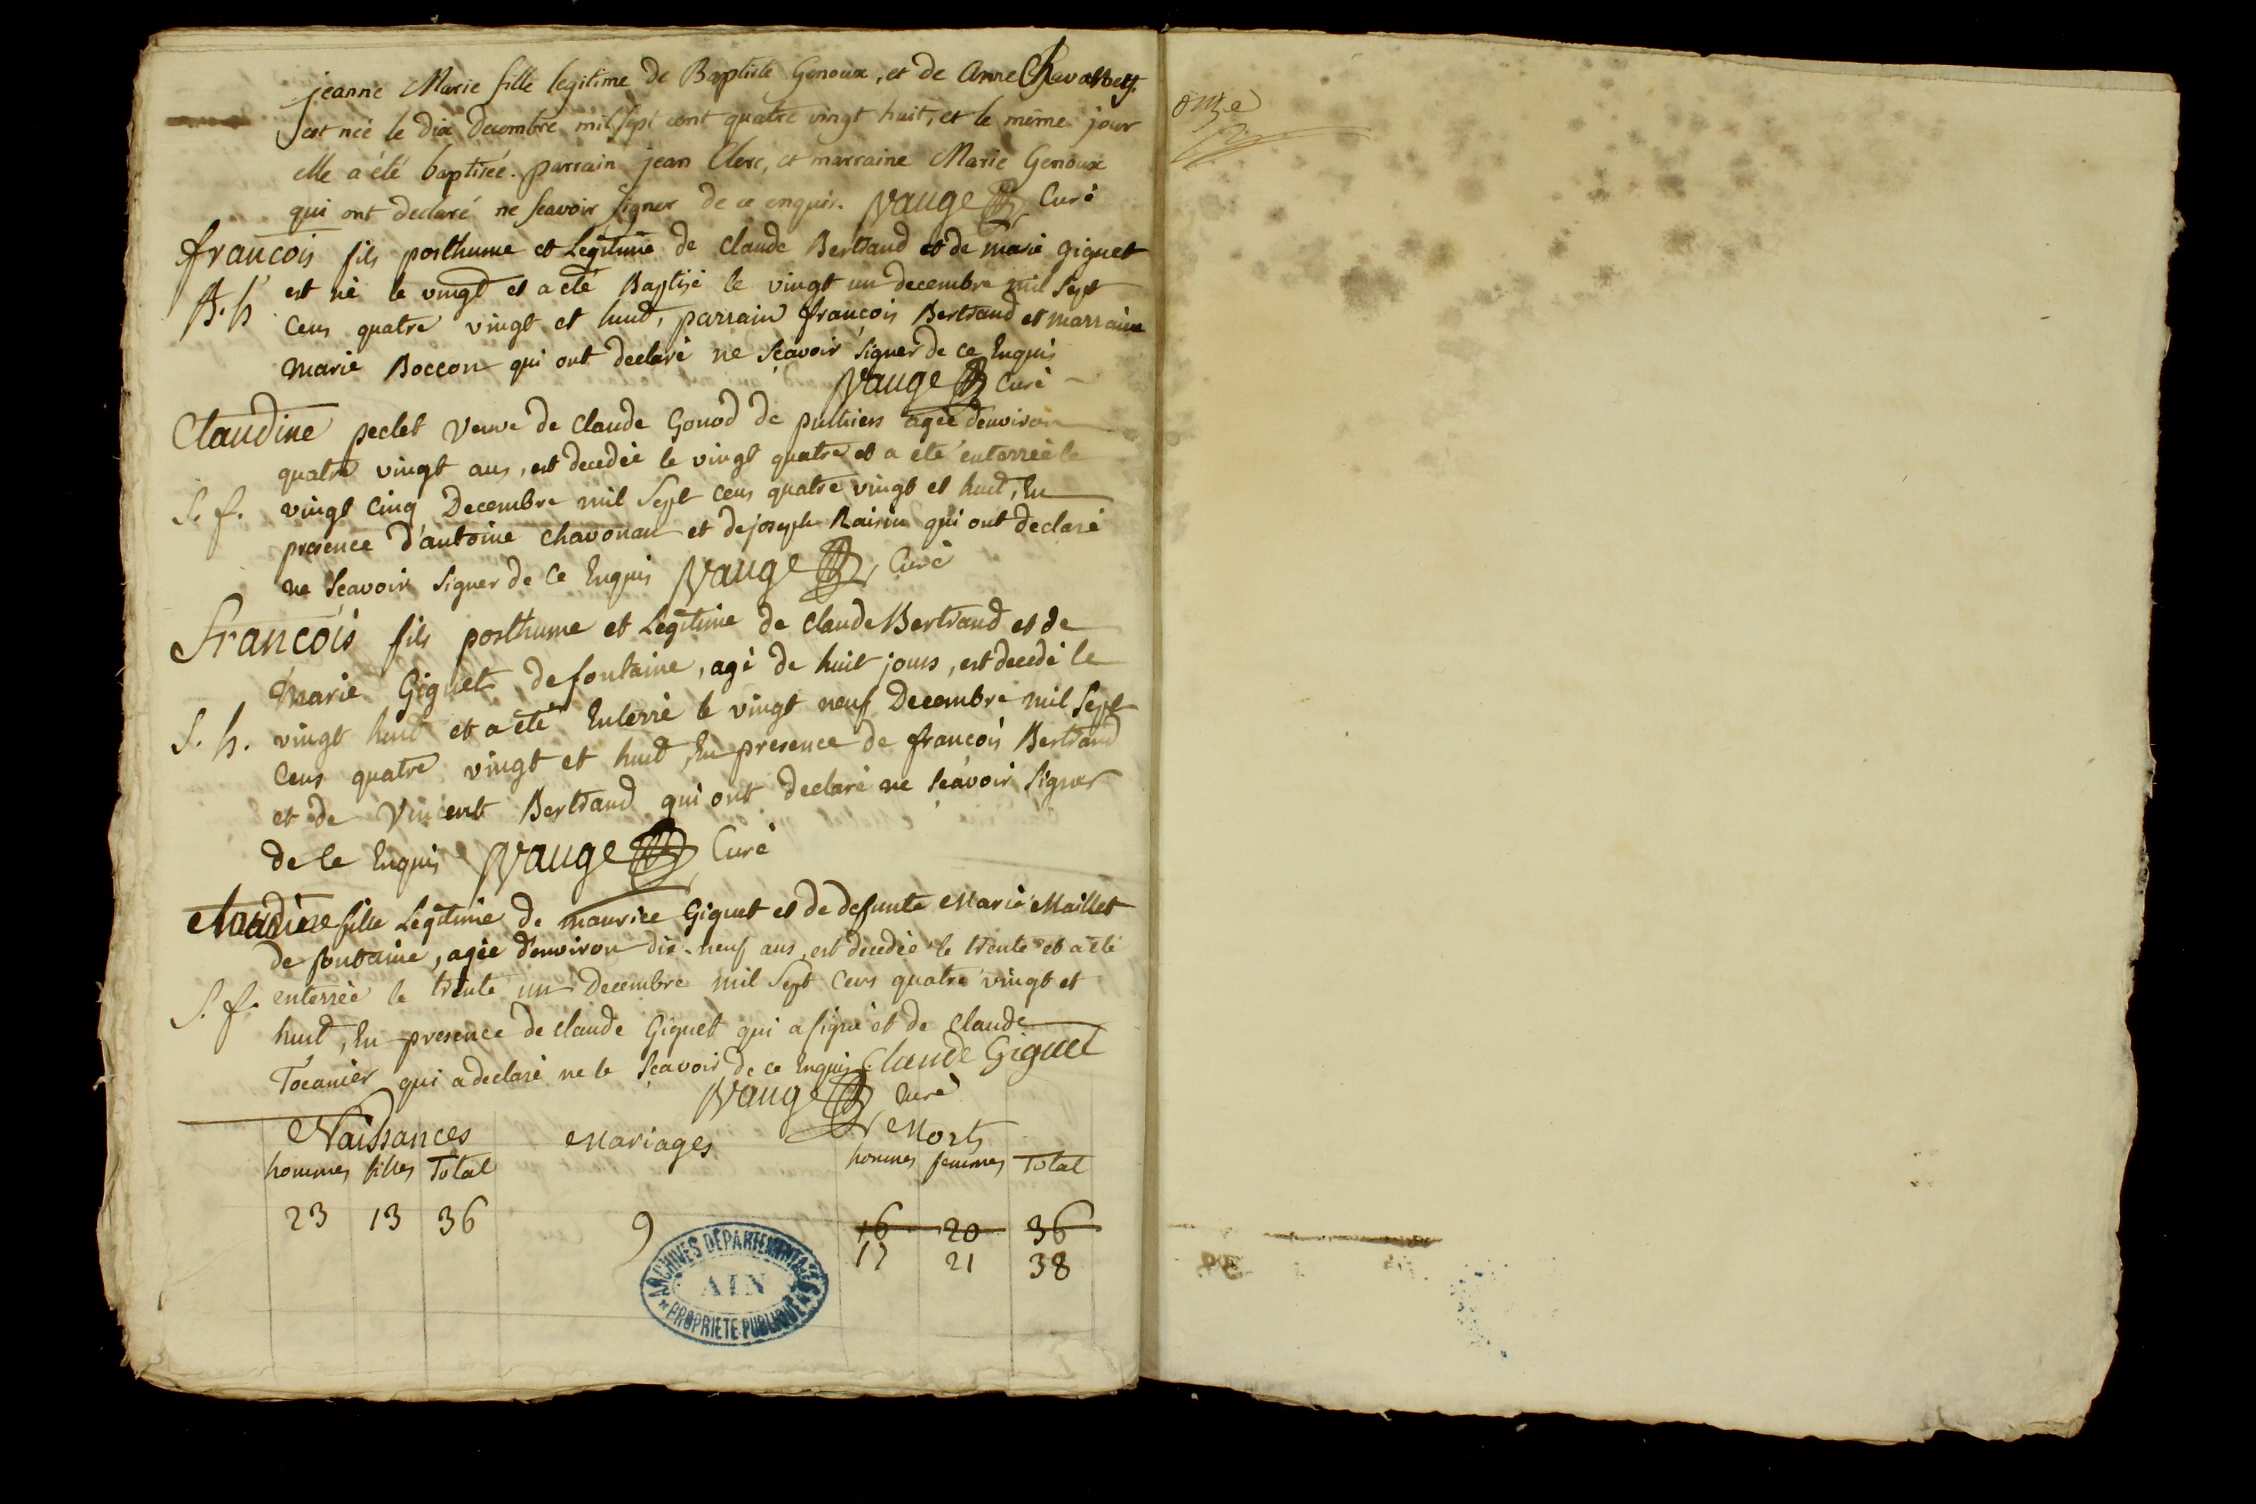 jeanne Marie fille legitime de Baptiste Genoux, et de Anne
est née le dix decembre mil sept cent quatre vingt huit, et le même jour
elle a été baptisée. parrain jean Clerc, et marraine Marie Genoux
qui ont declaré ne scavoir signer de ce enquis. Vauge Curé
françois fils posthume et Legitime de claude Bertrand et de marie giguet
B. h. est né le vingt et a été Baptisé le vingt un decembre mil Sept
Cens quatre vingt et huit, parrain françois Bertrand et marraine
marie Boccon qui ont declaré ne Scavoir Signer de ce Enquis
Vauge Curé
Claudine peclet veuve de claude Gonod de puthiers agée d'environ
quatre vingt ans, est decedée le vingt quatre et a eté enterrée le
S. f. vingt cinq Decembre mil Sept Cens quatre vingt et huit, En
presence d'antoine chavonan et de joseph Rairin qui ont declaré
ne Scavoir Signer de Ce Enquis Vauge Curé
François fils posthume et Legitime de claude Bertrand et de
Marie Giguet de fontaine, agé de huit jours, est decedé le
S. h. vingt huit et a eté Enterré le vingt neuf Decembre mil Sept
Cens quatre vingt et huit, En presence de françois Bertrand
et de Vincent Bertrand qui ont declaré ne Scavoir Signer
de Ce Enquis Vauge Curé
Claudine fille Legitime de maurice Giguet et de defunte Marie Maillet
de fontaine, agée d'environ dix-neuf ans, est decedée le trente et a eté
S. f. enterrée le trente un Decembre mil Sept Cens quatre vingt et
huit, En presence de claude Giguet qui a signé et de claude
Tocanier qui a declaré ne le Scavoir de ce Enquis Claude Giguet
Vauge Curé
Naissances Mariages Morts
hommes filles Total hommes femmes Total
23 13 36 9 16 20 36
17 21 38
ARCHIVES DÉPARTEMENTALES
AIN
PROPRIÉTÉ PUBLIQUE
onze